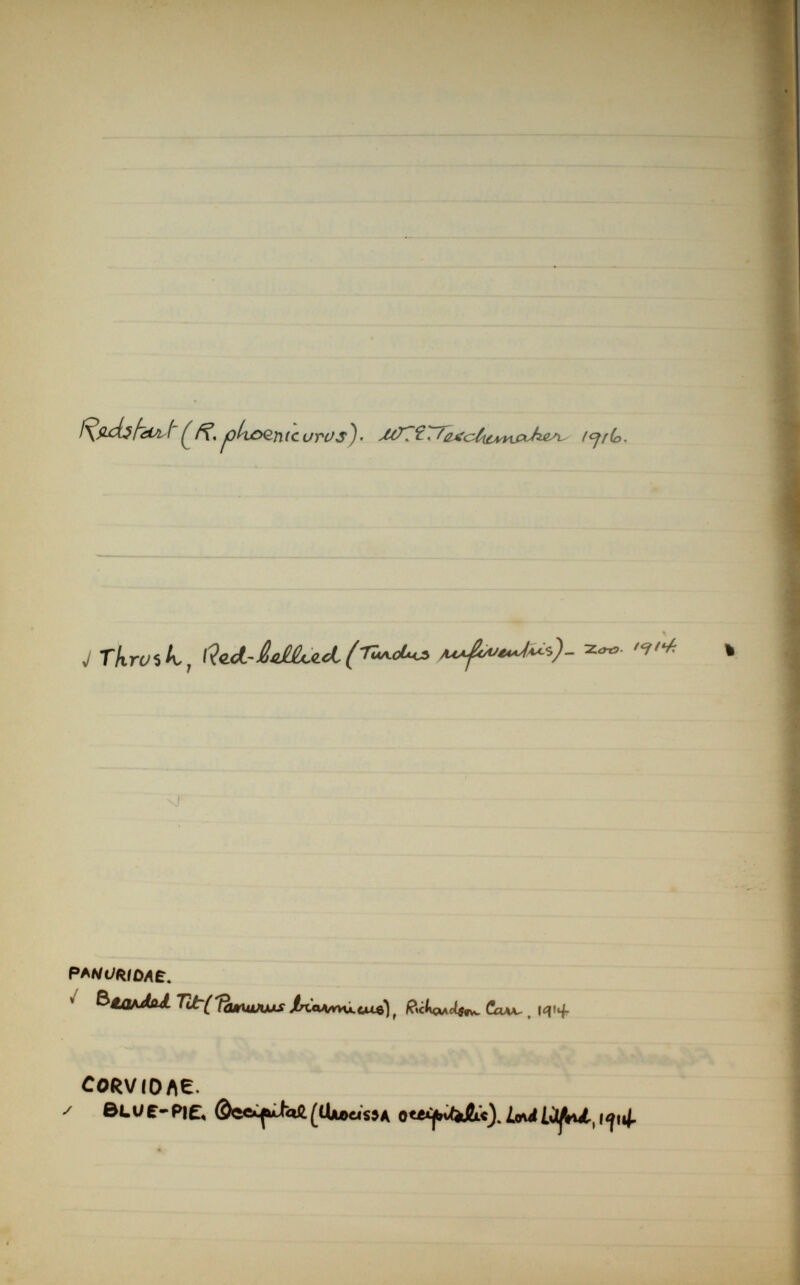 Redstart (R. phoenicurus). W.E. Teschemaker 1916.
√ Thrush, Red-bellied (Turdus rufiventris) - Zoo. 1914.
PANURIDAE.
√ Bearded Tit (Panurus biarmicus), Richardson Carr, 1914
CORVIDAE.
✓ BLUE-PIE. Occipital (Urocissa occipitalis). Lord Lilford, 1914